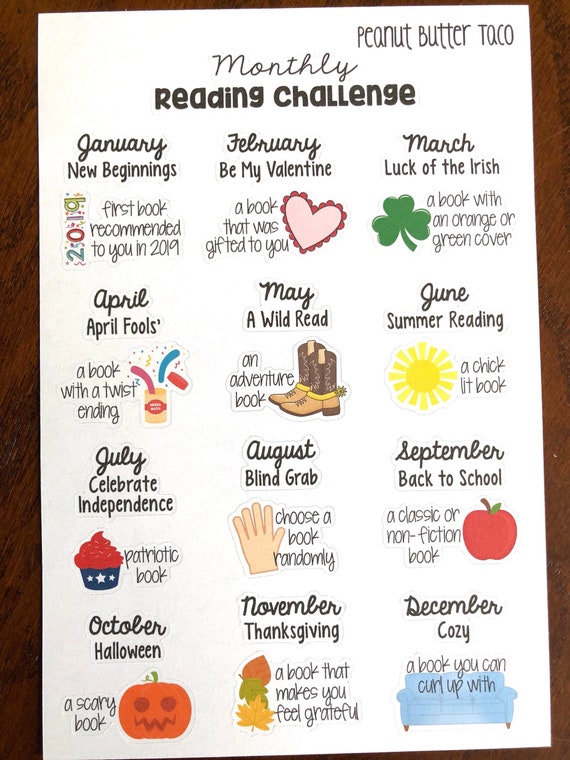 Peanut Butter Taco
Monthly
Reading Challenge
January
New Beginnings
2019
first book
recommended
to you in 2019
February
Be My Valentine
a book
that was
gifted to you
March
Luck of the Irish
a book with
an orange or
green cover
April
April Fools'
a book
with a twist
ending
MIXED
NUTS
May
A Wild Read
an
adventure
book
June
Summer Reading
a chick
lit book
July
Celebrate
Independence
patriotic
book
August
Blind Grab
choose a
book
randomly
September
Back to School
a classic or
non-fiction
book
October
Halloween
a scary
book
November
Thanksgiving
a book that
makes you
feel grateful
December
Cozy
a book you can
curl up with